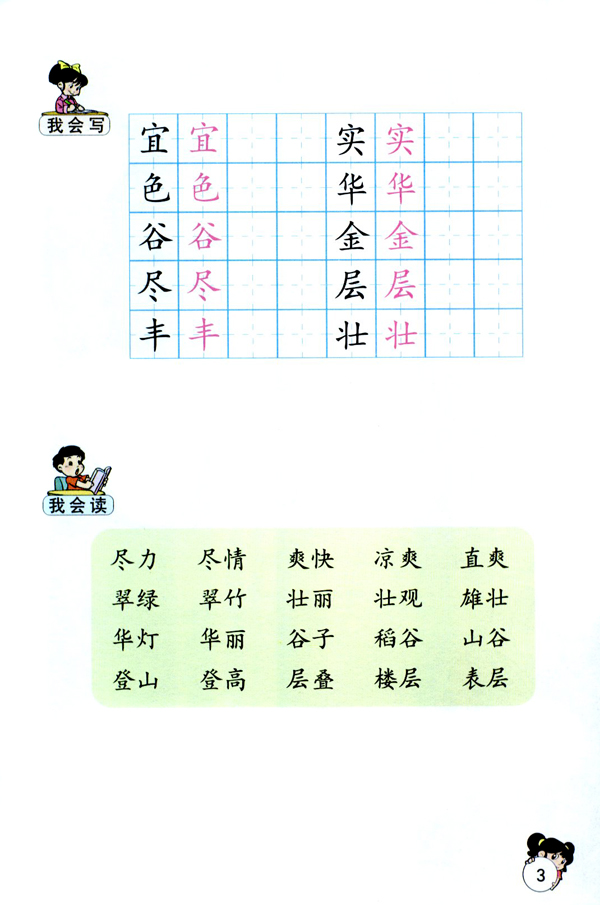 我会写
宜 宜 实 实
色 色 华 华
谷 谷 金 金
尽 尽 层 层
丰 丰 壮 壮
我会读
尽力 尽情 爽快 凉爽 直爽
翠绿 翠竹 壮丽 壮观 雄壮
华灯 华丽 谷子 稻谷 山谷
登山 登高 层叠 楼层 表层
3